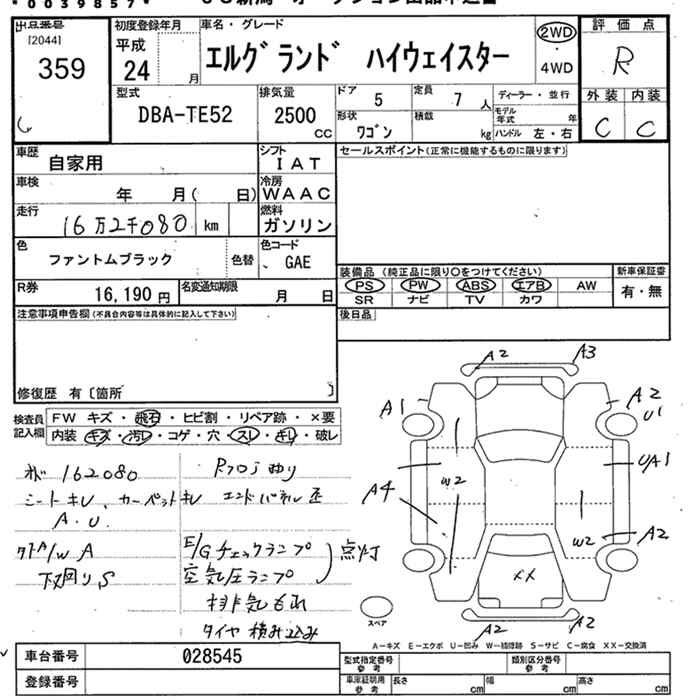 *0039857*
出品番号
[2044]
359
初度登録年月
平成
24 月
車名・グレード
エルグランド ハイウェイスター
2WD
・
4WD
評価点
R
型式
DBA-TE52
排気量
2500
CC
ドア
5
定員
7 人
形状
ワゴン
積載
kg
ディーラー・並行
モデル年式 年
ハンドル 左・右
外装 内装
C C
車歴
自家用
シフト
IAT
セールスポイント(正常に機能するものに限ります)
車検
年 月( 日)
冷房
WAAC
走行
16万2千080 km
燃料
ガソリン
色
ファントムブラック
色替
色コード
GAE
装備品 (純正品に限り○をつけてください)
PS PW ABS エアB AW
SR ナビ TV カワ
新車保証書
有・無
R券
16,190 円
名変通知期限
月 日
後日品
注意事項申告欄(不具合内容等は具体的に記入して下さい)
修復歴 有〔箇所 〕
検査員
記入欄
FW キズ・飛石・ヒビ割・リペア跡・×要
内装 キズ・汚レ・コゲ・穴・スレ・キレ・破レ
162080
シートキレ、カーペットキレ
A.U.
A/W A
下回りS
エンドパネル
E/Gチェックランプ
空気圧ランプ
点灯
排気もれ
タイヤ積み込み
A2 A3
A1 A2
U1
W2 U/A1
A4
W2 A2
XX
A2 A2
スペア
A-キズ E-エクボ U-凹み W-補修跡 S-サビ C-腐食 XX-交換済
車台番号 028545
登録番号
型式指定番号
参考
類別区分番号
参考
車庫証明用
参考
長さ cm
幅 cm
高さ cm